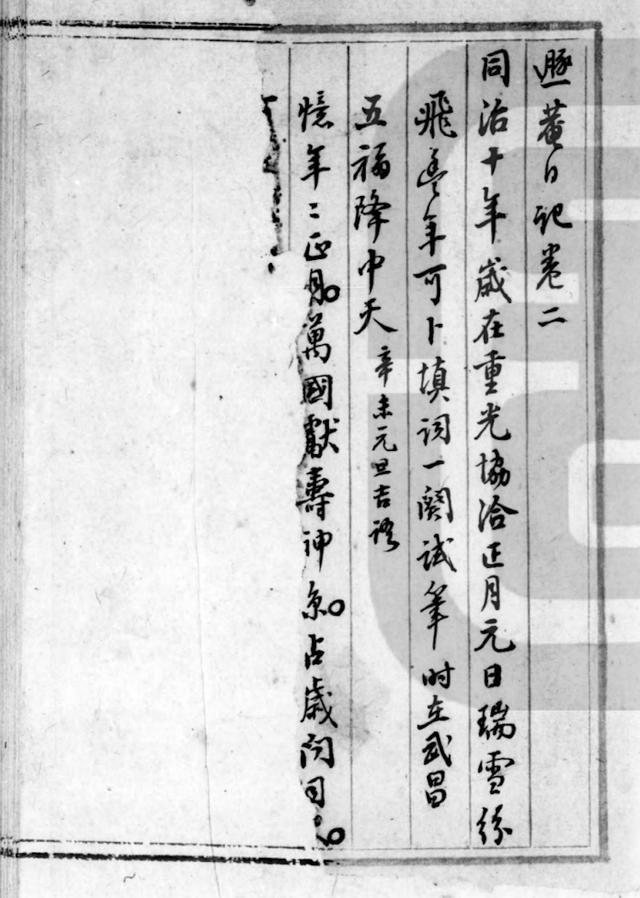 遯菴日記卷二
同治十年歲在重光協洽正月元日瑞雪紛
飛豐年可卜填詞一闋試筆時在武昌
五福降中天 辛未元旦吉語
憶年〻正月。萬國獻壽神京。占歲問同。